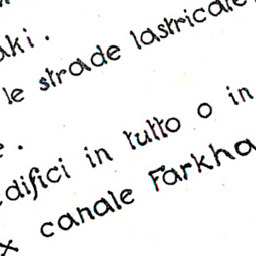 aki.
le strade lastricate
edifici in tutto o in
x canale Farkha